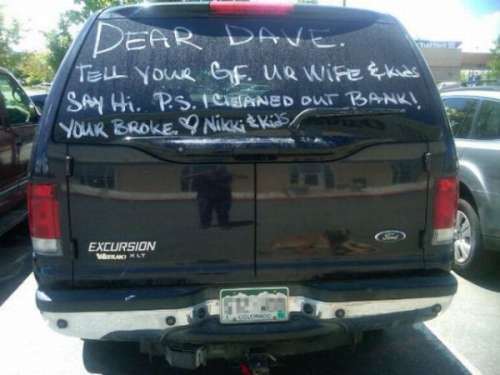 DEAR DAVE.
TELL YOUR G.F. UR WIFE & Kids
SAY Hi. P.S. I CLEANED OUT BANK!
YOUR BROKE. ♡ Nikki & Kids
EXCURSION
XLT
Ford
COLORADO